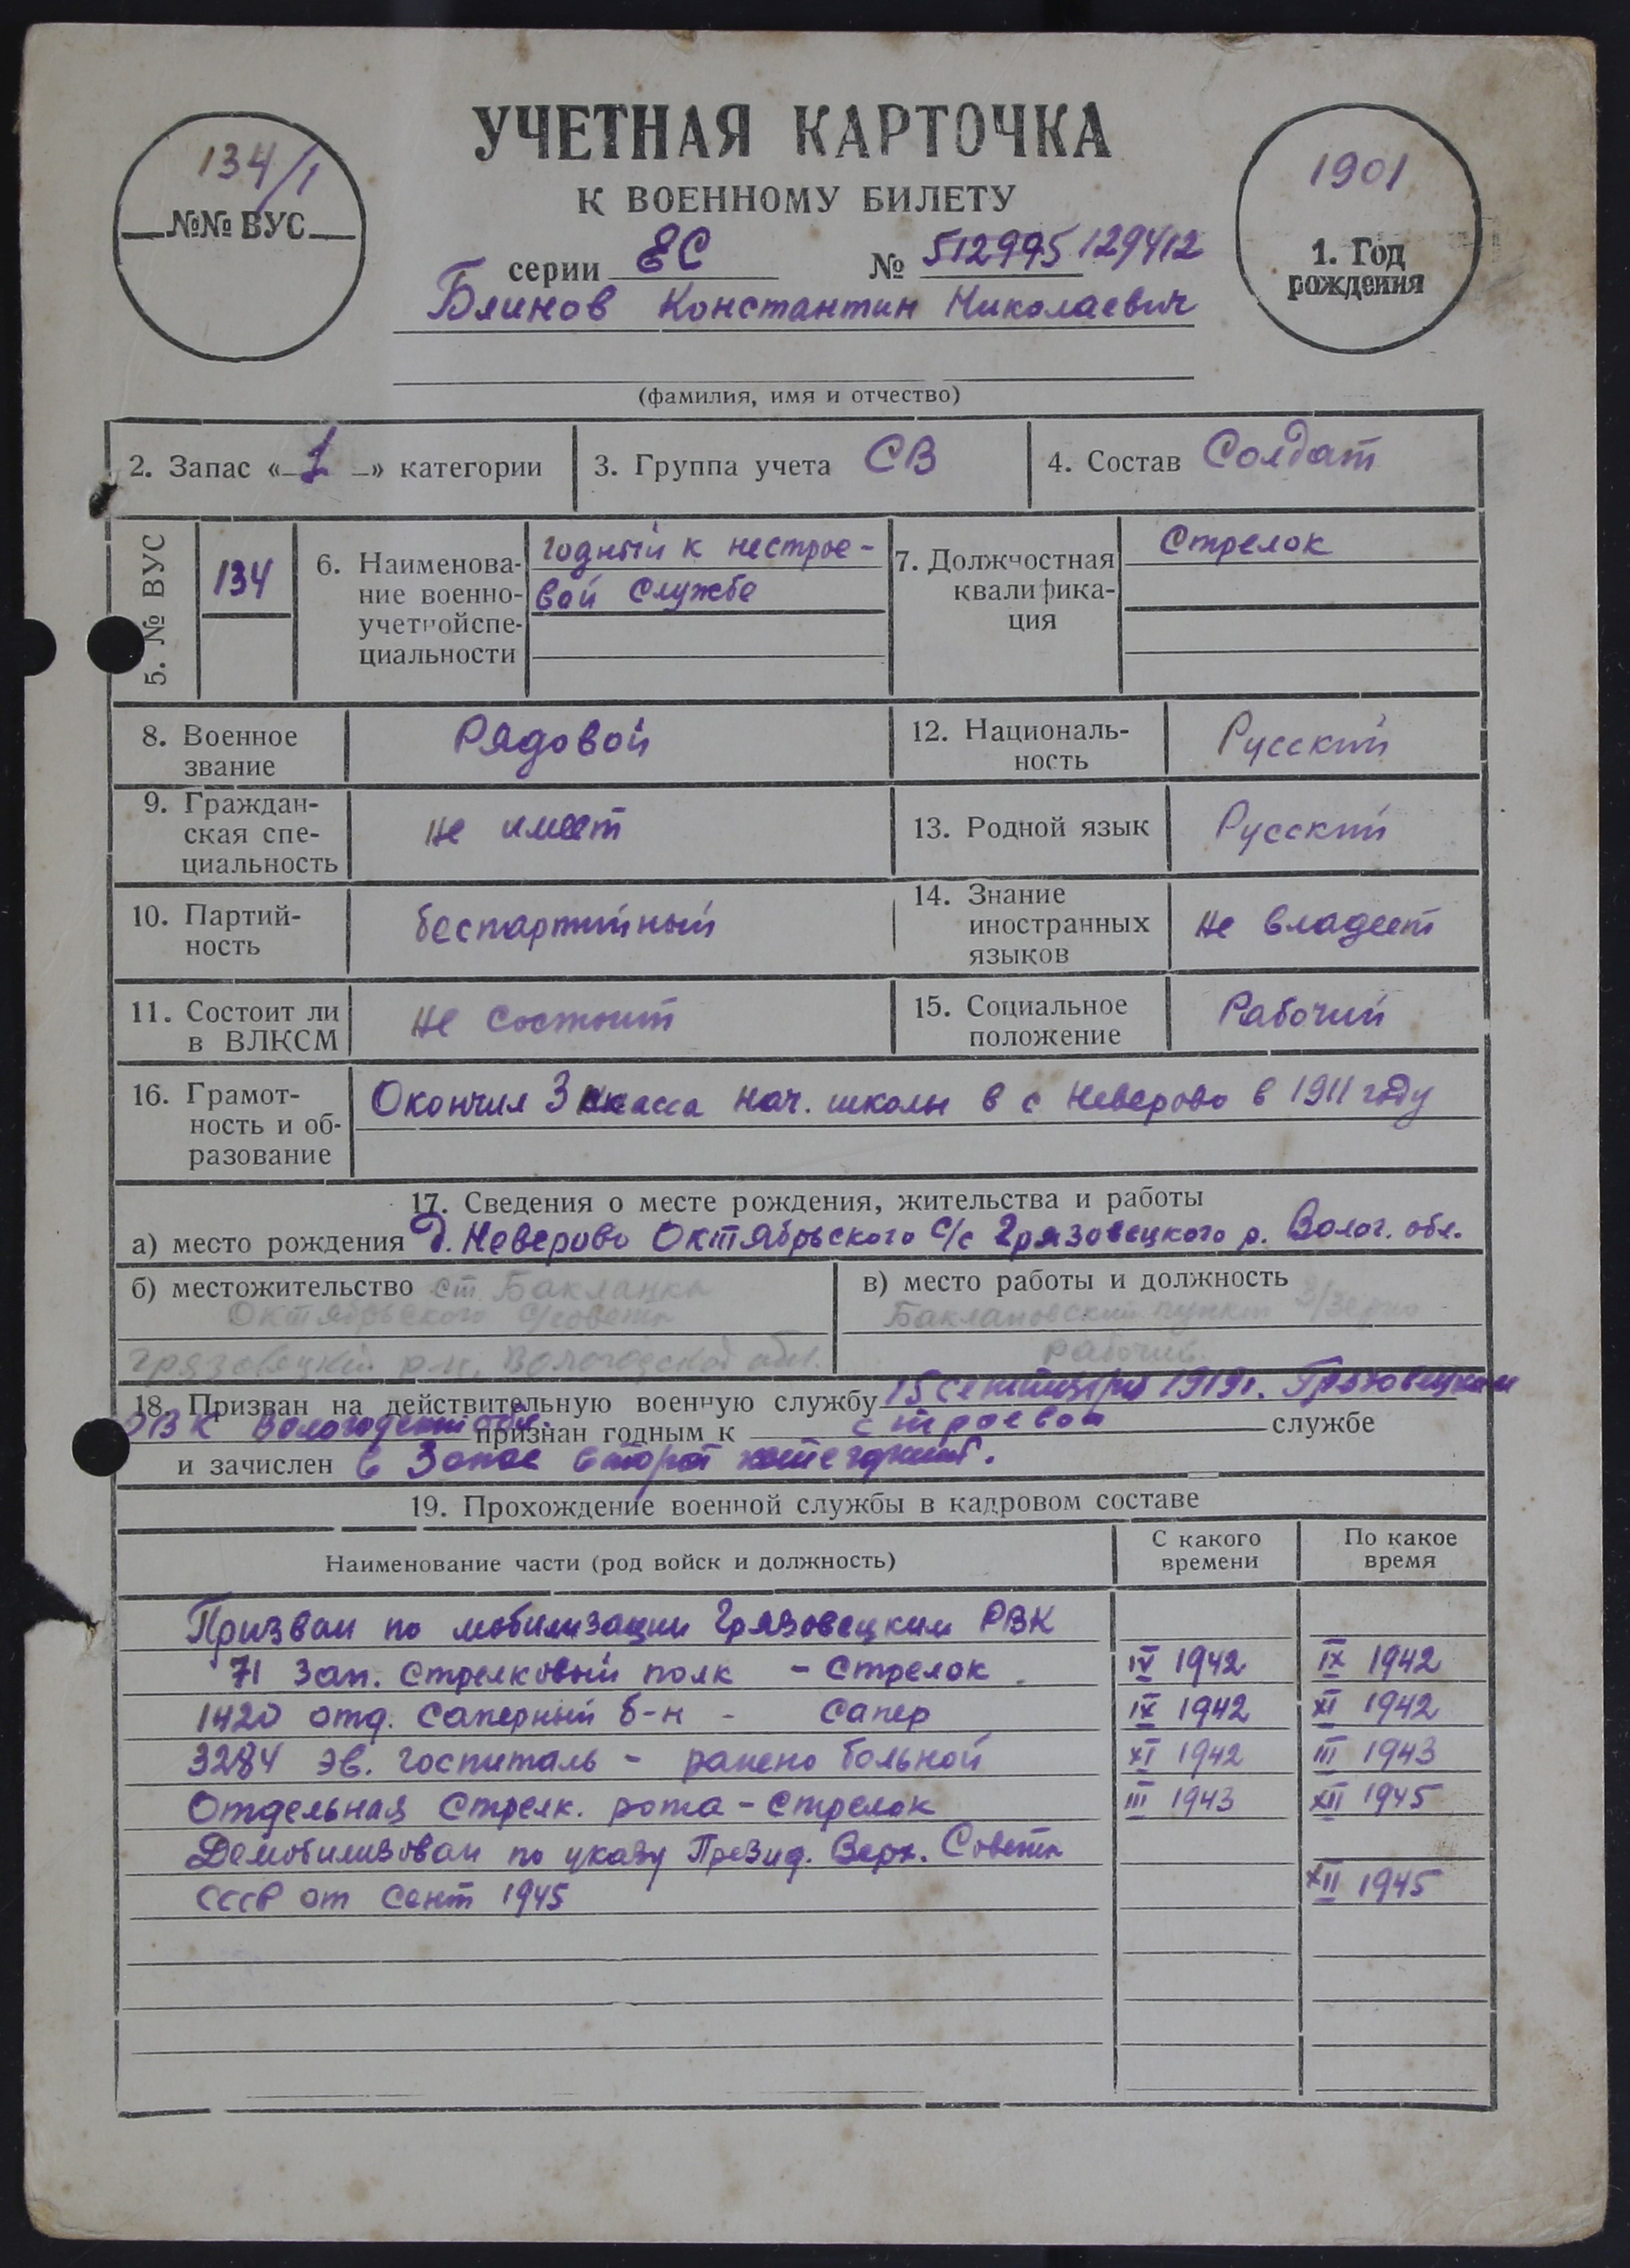 УЧЕТНАЯ КАРТОЧКА
К ВОЕННОМУ БИЛЕТУ
134/1
№№ ВУС
1901
1. Год
рождения
серии ЕС № 512995 129412
Блинов Константин Николаевич
(фамилия, имя и отчество)
2. Запас «1» категории
3. Группа учета СВ
4. Состав Солдат
5. № ВУС
134
6. Наименова-
ние военно-
учетнойспе-
циальности
годный к нестрое-
вой службе
7. Должностная
квалифика-
ция
Стрелок
8. Военное
звание
Рядовой
12. Националь-
ность
Русский
9. Граждан-
ская спе-
циальность
не имеет
13. Родной язык
Русский
10. Партий-
ность
беспартийный
14. Знание
иностранных
языков
не владеет
11. Состоит ли
в ВЛКСМ
не состоит
15. Социальное
положение
Рабочий
16. Грамот-
ность и об-
разование
Окончил 3 класса нач. школы в с Неверово в 1911 году
17. Сведения о месте рождения, жительства и работы
а) место рождения д. Неверово Октябрьского с/с Грязовецкого р. Волог. обл.
б) местожительство ст. Бакланка
Октябрьского с/совета
Грязовецкий р-н, Вологодской обл.
в) место работы и должность
Баклановский пункт З/зерно
рабочий
18. Призван на действительную военную службу 15 сентября 1919г. Грязовецким
РВК Вологодской обл. признан годным к строевой службе
и зачислен в Запас второй категории.
19. Прохождение военной службы в кадровом составе
Наименование части (род войск и должность)
С какого
времени
По какое
время
Призван по мобилизации Грязовецким РВК
71 зап. стрелковый полк - стрелок IV 1942 IX 1942
1420 отд. саперный б-н - сапер IX 1942 XI 1942
3284 эв. госпиталь - ранено больной XI 1942 III 1943
Отдельная стрелк. рота - стрелок III 1943 XII 1945
Демобилизован по указу Презид. Верх. Совета
СССР от сент 1945 XII 1945